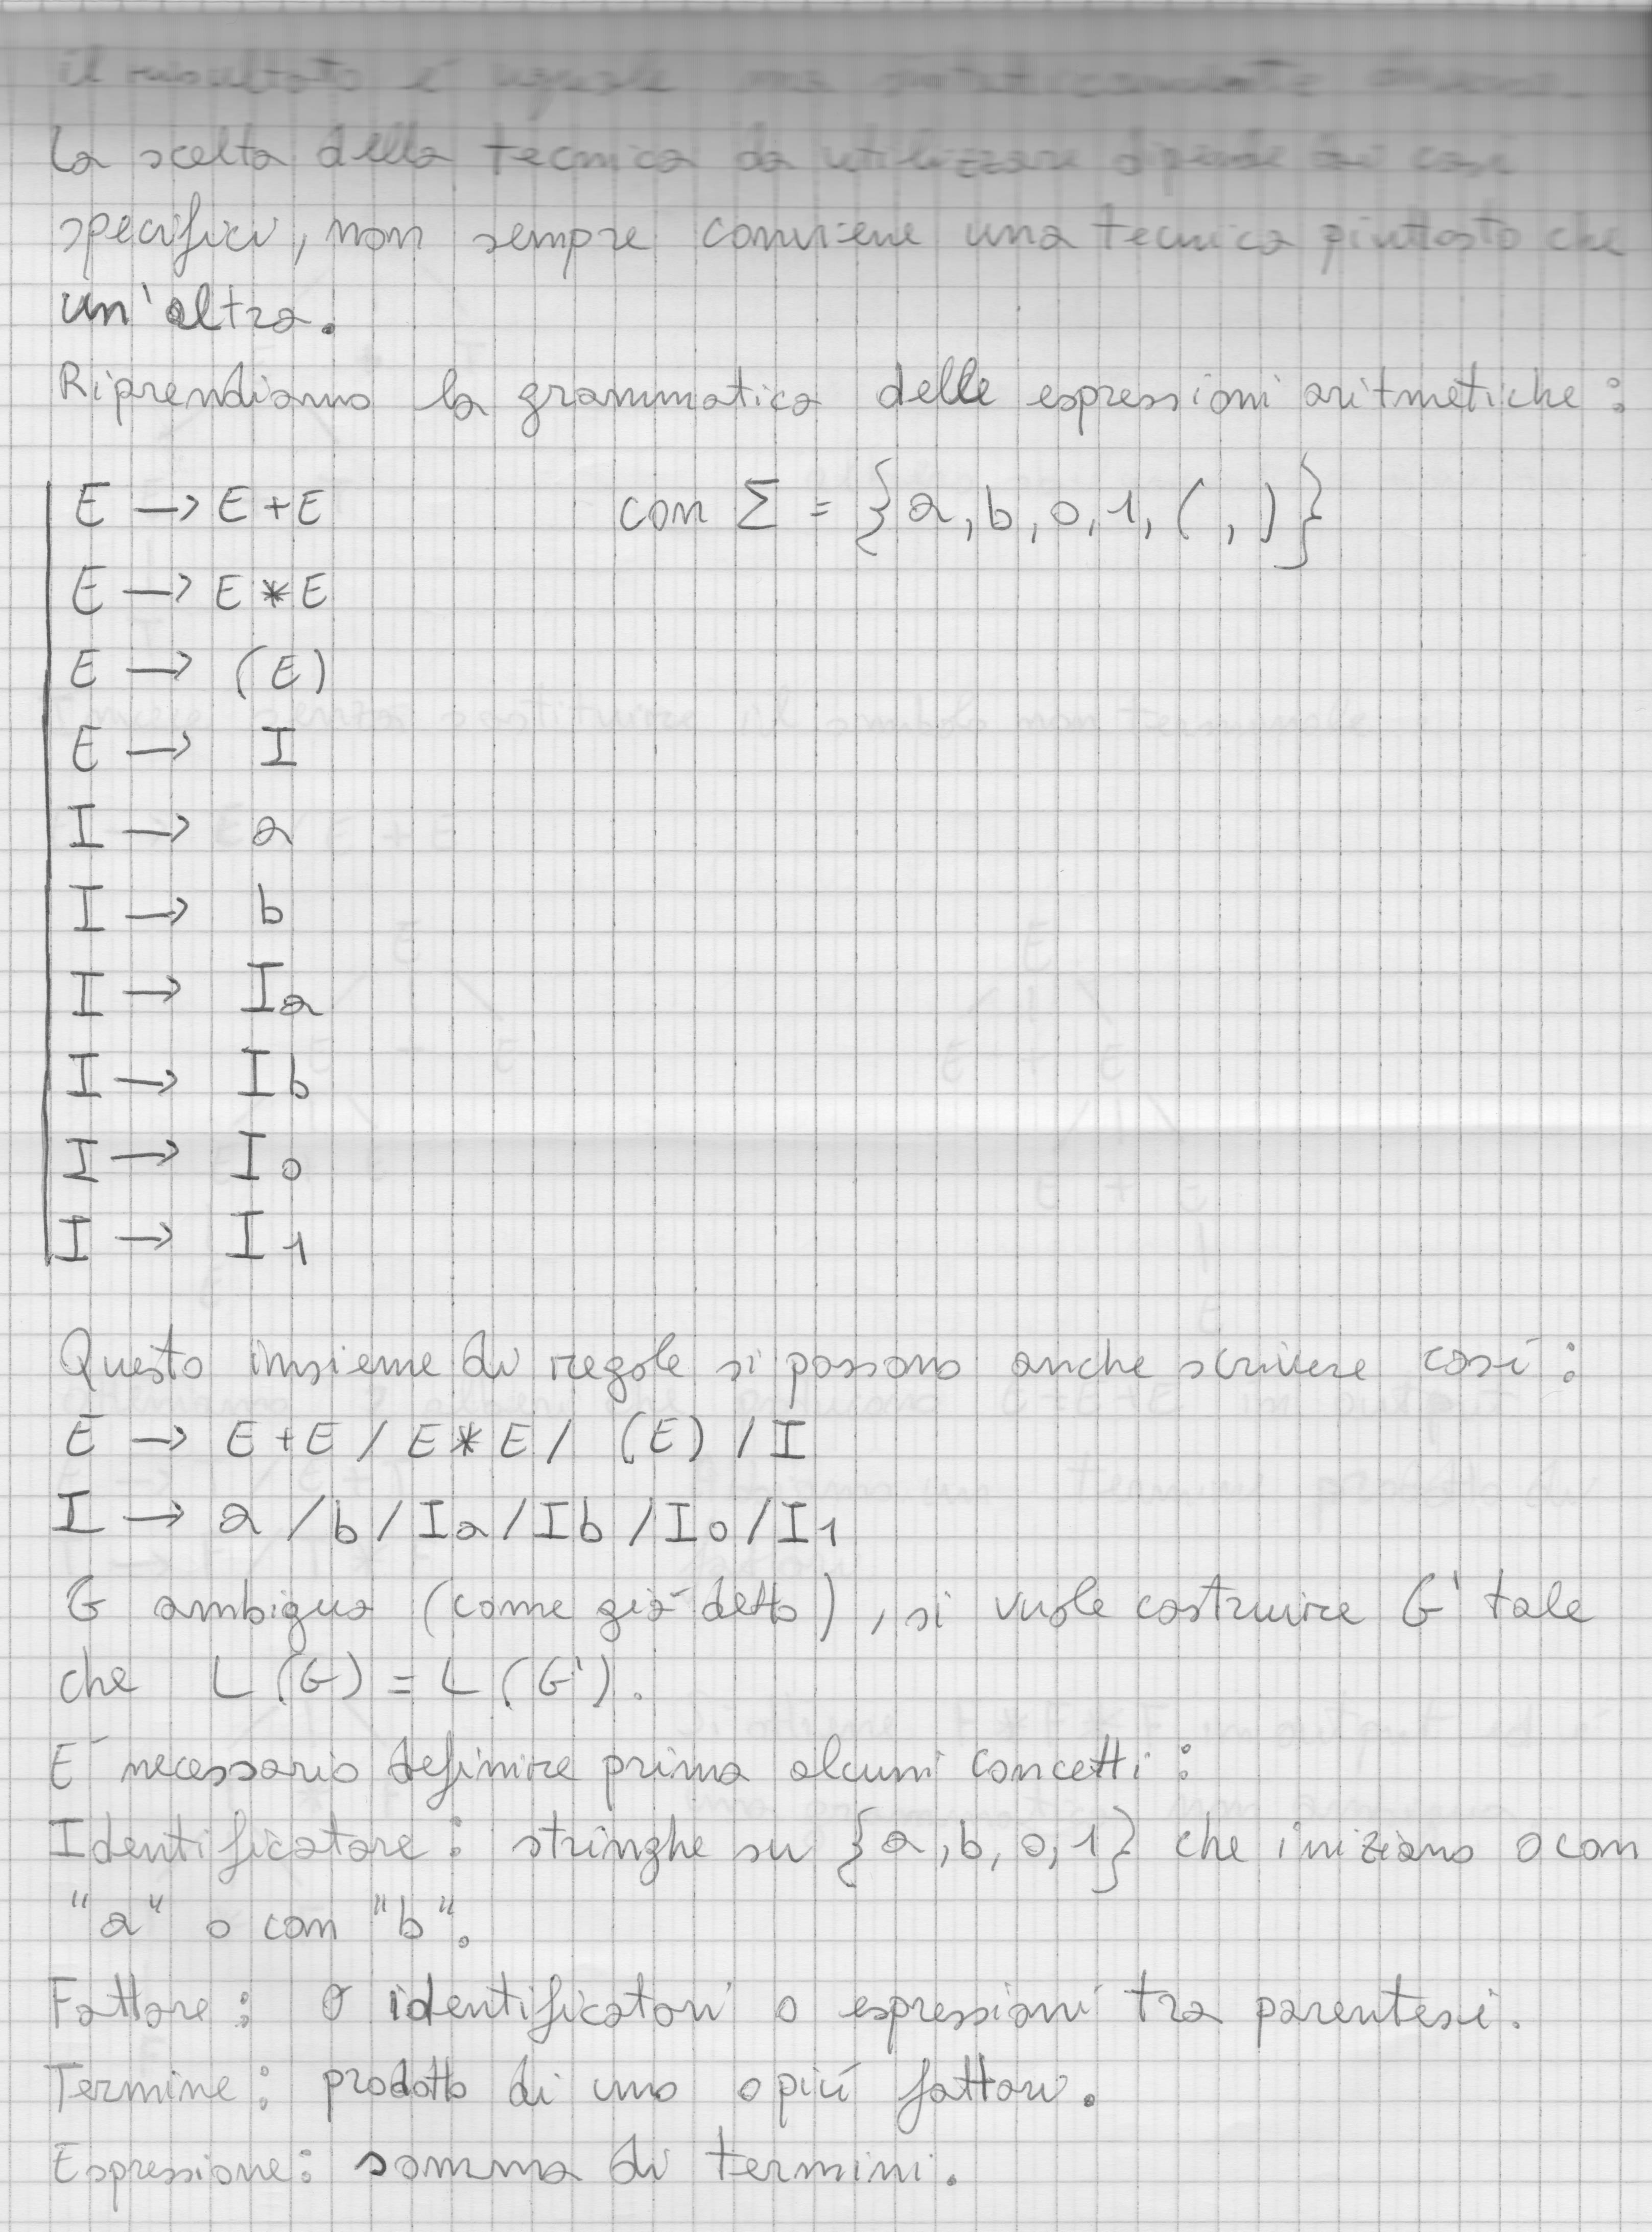 il risultato è uguale ma
La scelta della tecnica da utilizzare dipende dai casi
specifici, non sempre conviene una tecnica piuttosto che
un'altra.
Riprendiamo la grammatica delle espressioni aritmetiche:
E → E+E con Σ = {a, b, 0, 1, (, )}
E → E*E
E → (E)
E → I
I → a
I → b
I → Ia
I → Ib
I → I0
I → I1
Questo insieme di regole si possono anche scrivere così:
E → E+E / E*E / (E) / I
I → a / b / Ia / Ib / I0 / I1
G ambigua (come già detto), si vuole costruire G' tale
che L(G) = L(G').
E' necessario definire prima alcuni concetti:
Identificatore: stringhe su {a, b, 0, 1} che iniziano o con
"a" o con "b".
Fattore: o identificatori o espressioni tra parentesi.
Termine: prodotto di uno o più fattori.
Espressione: somma di termini.